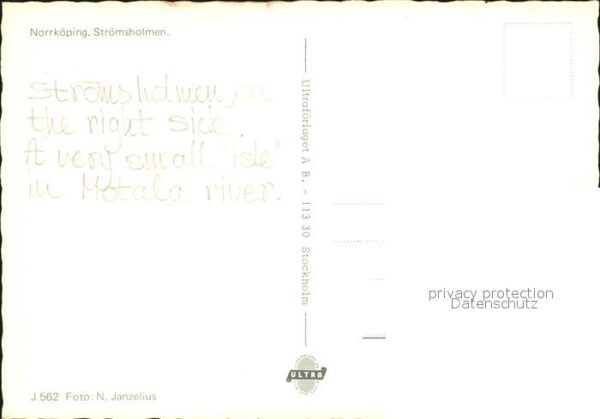 Norrköping. Strömsholmen.
Strömsholmen, on
the right side.
A very small "isle"
in Motala river.
Ultraförlaget A B. - 113 30 Stockholm
privacy protection
Datenschutz
ULTRA
J 562 Foto: N. Janzelius